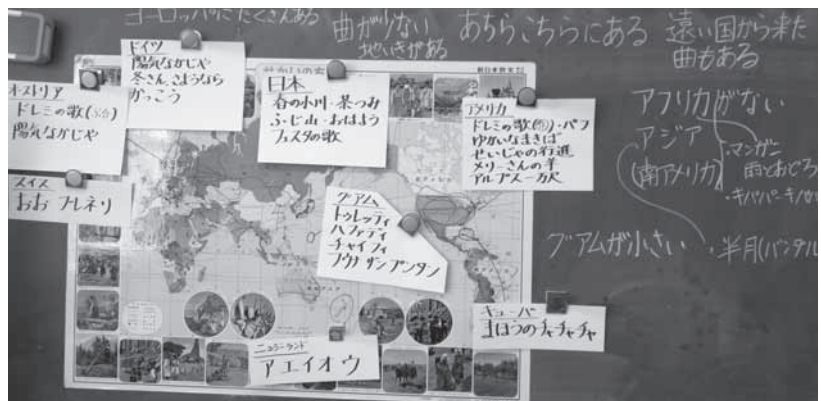 ヨーロッパにたくさんある
曲が少ない
地いきがある
あちらこちらにある
遠い国から来た
曲もある
ドイツ
陽気なかじや
冬さん、さようなら
かっこう
オーストリア
ドレミの歌
陽気なかじや
スイス
おお ブレネリ
日本
春の小川・茶つみ
ふじ山・おはよう
フェスタの歌
アメリカ
ドレミの歌・パフ
ゆかいなまきば
せいじゃの行進
メリーさんの羊
アルプス一万尺
グアム
トゥレッティ
ハファデイ
チャイフィ
キューバ
まほうのチャチャチャ
ニュージーランド
アエイオウ
アフリカがない
アジア
(南アメリカ)
・マンガニ
雨とおどろ
グアムが小さい
・半月(バンダル